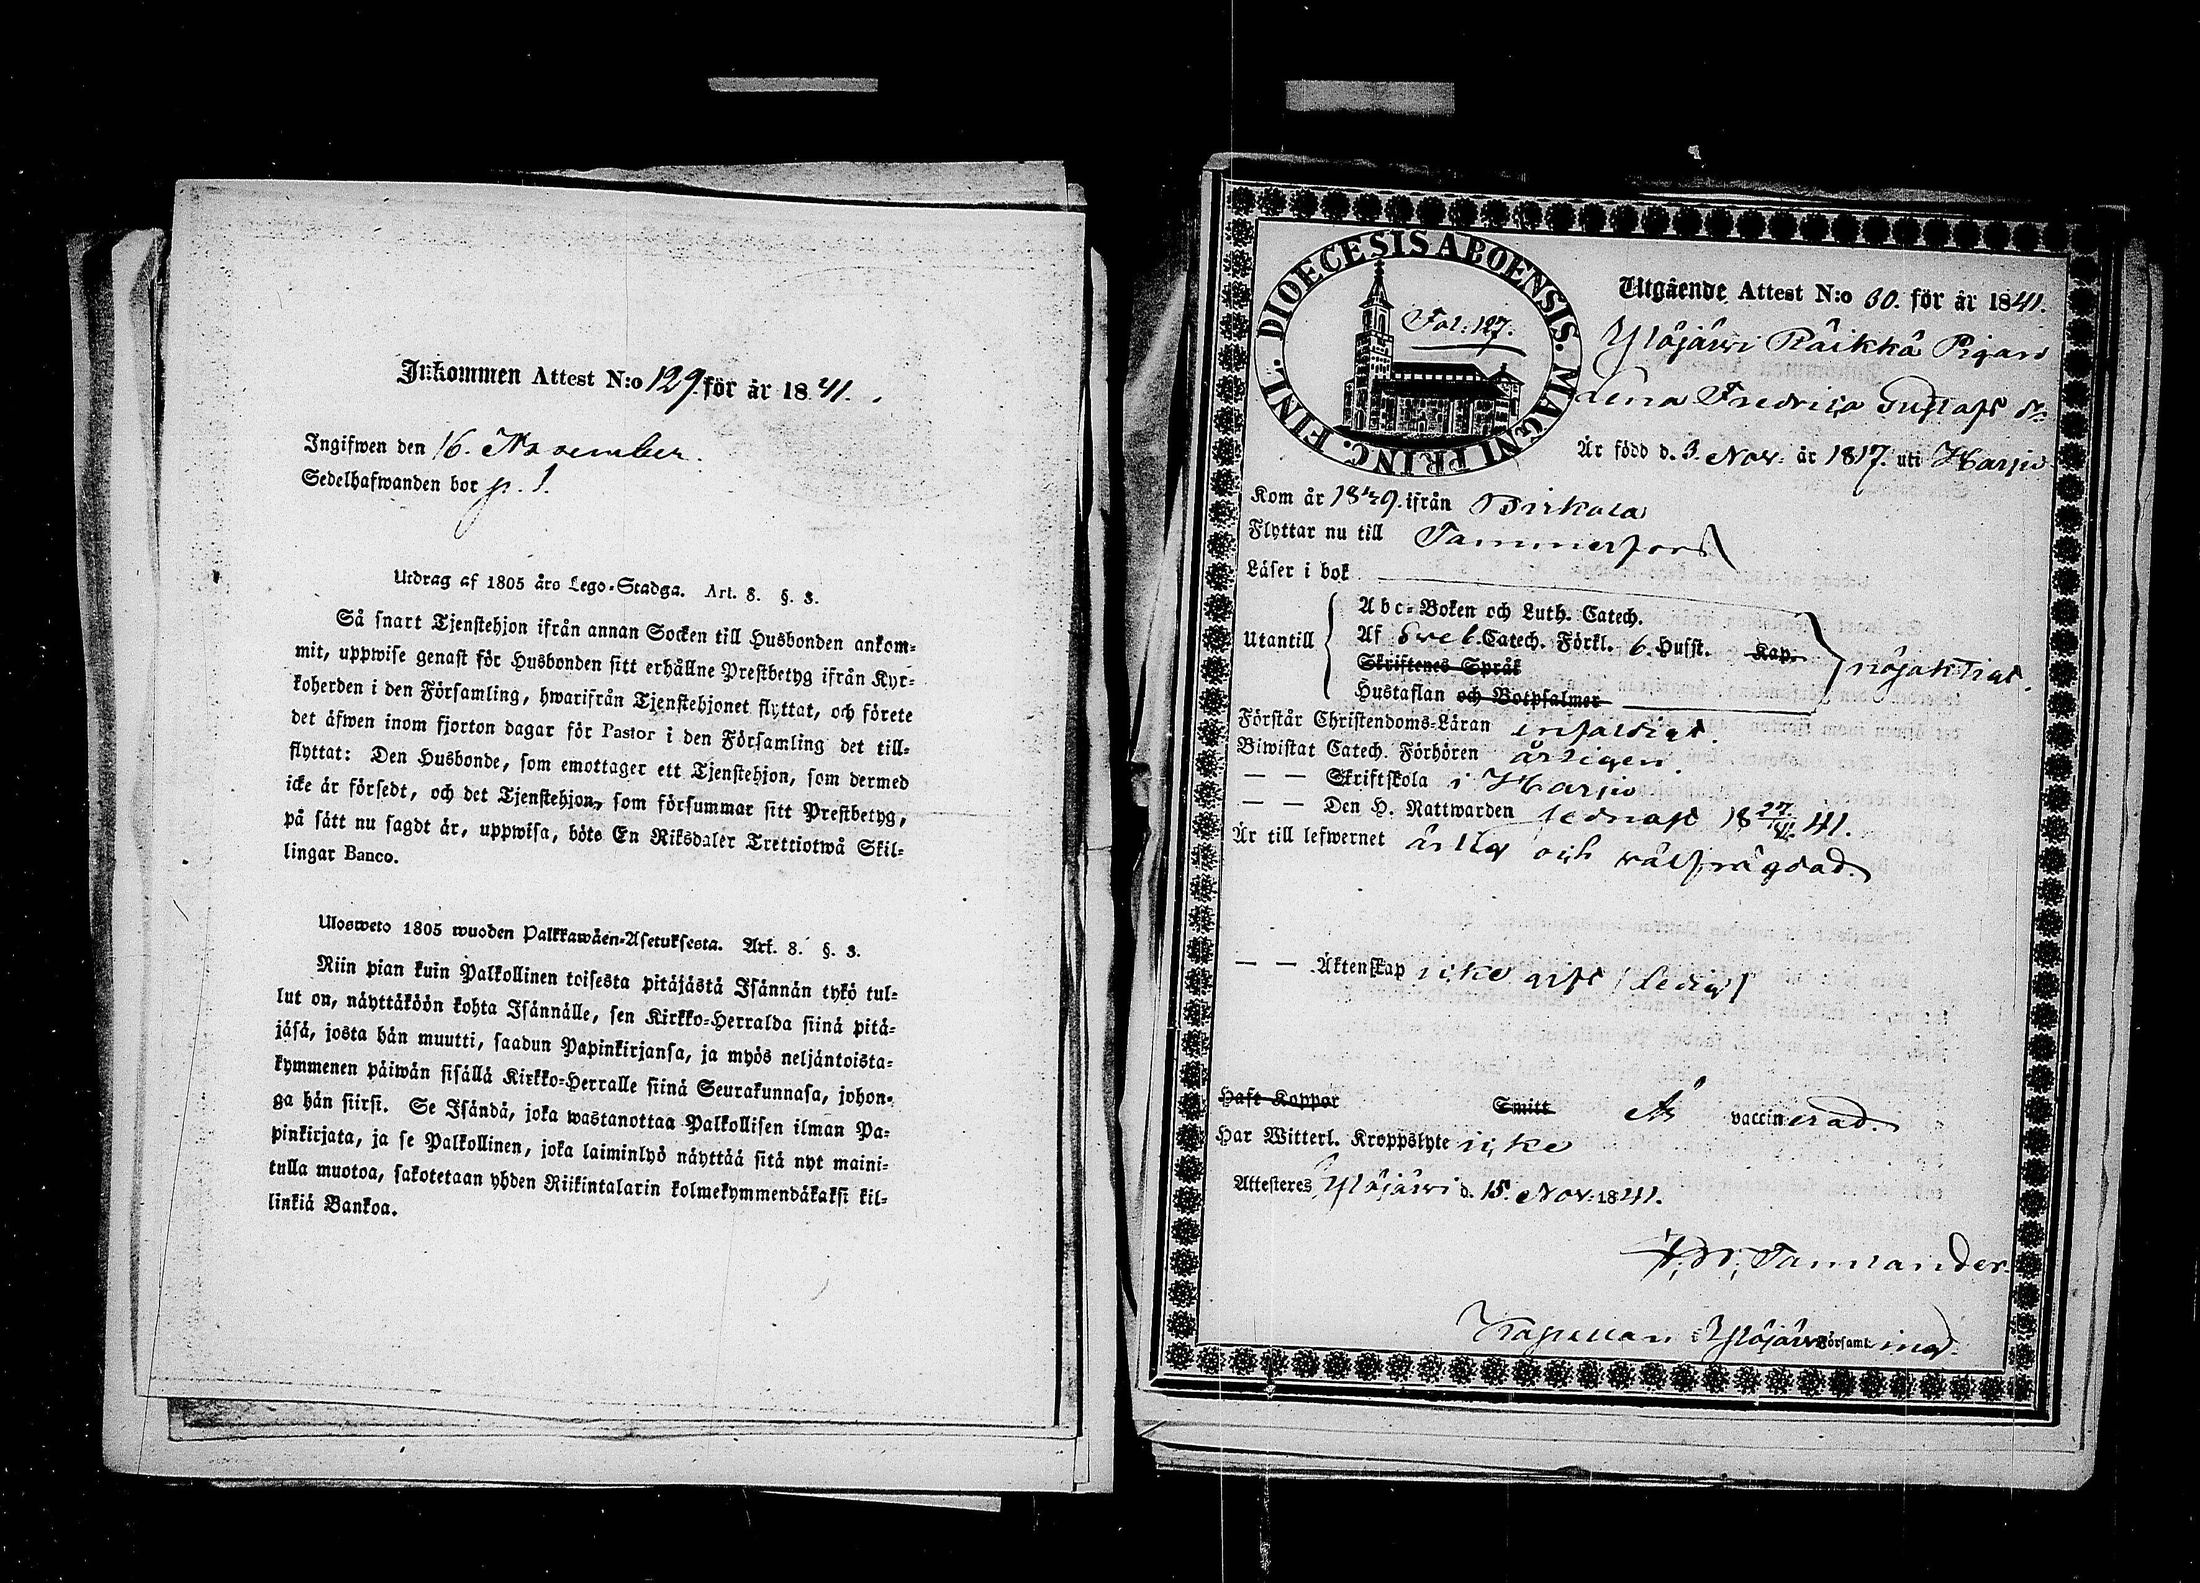 Inkommen Attest N:o 129. för år 1841.
Ingifwen den 16. November.
Sedelhafwanden bor p. 1.
Utdrag af 1805 års Lego-Stadga. Art. 8. §. 3.
Så snart Tjenstehjon ifrån annan Socken till Husbonden ankom-
mit, uppwise genast för Husbonden sitt erhållne Prestbetyg ifrån Kyr-
koherden i den Församling, hwarifrån Tjenstehjonet flyttat, och förete
det äfwen inom fjorton dagar för Pastor i den Församling det till-
flyttat: Den Husbonde, som emottager ett Tjenstehjon, som dermed
icke är försedt, och det Tjenstehjon, som försummar sitt Prestbetyg,
på sätt nu sagdt är, uppwisa, böte En Riksdaler Trettiotwå Skil-
lingar Banco.
Ulosweto 1805 wuoden Palkkawäen-Asetuksesta. Art. 8. §. 3.
Niin pian kuin Palkollinen toisesta pitäjästä Isännän tykö tul-
lut on, näyttäköön kohta Isännälle, sen Kirkko-Herralda siinä pitä-
jäsä, josta hän muutti, saadun Papinkirjansa, ja myös neljäntoista-
kymmenen päiwän sisällä Kirkko-Herralle siinä Seurakunnasa, johon-
ga hän siirsi. Se Isändä, joka wastanottaa Palkollisen ilman Pa-
pinkirjata, ja se Palkollinen, joka laiminlyö näyttää sitä nyt maini-
tulla muotoa, sakotetaan yhden Riikintalarin kolmekymmendäkaksi kil-
linkiä Bankoa.
DIOECESIS ABOENSIS. MAGNI PRINC. FINL.
Fol. 127.
Utgående Attest N:o 60. för år 1841.
Ylöjärvi Räikkä Pigan
Lena Fredrica Gustafs dr
Är född d. 3. Nov. år 1817. uti Harju
Kom år 1839. ifrån Birkala
Flyttar nu till Tammerfors
Läser i bok
Utantill
Abc-Boken och Luth. Catech.
Af Sveb. Catech. Förkl. 6. Hufst. Kap.
Skriftenes Språk
Hustaflan och Botpsalmer
nöjaktigt.
Förstår Christendoms-Läran enfaldigt.
Biwistat Catech. Förhören årligen.
— — Skriftskola i Harju
— — Den H. Nattwarden sednast 18 27/6 41.
Är till lefwernet ärlig och välfrägdad.
— — Äktenskap icke gift /ledig/
Haft Koppor Smitt Är vaccinerad.
Har Witterl. Kroppslyte icke
Attesteres Ylöjärvi d. 15. Nov. 1841.
Tamlander.
Kapellan i Ylöjärvi Församling.